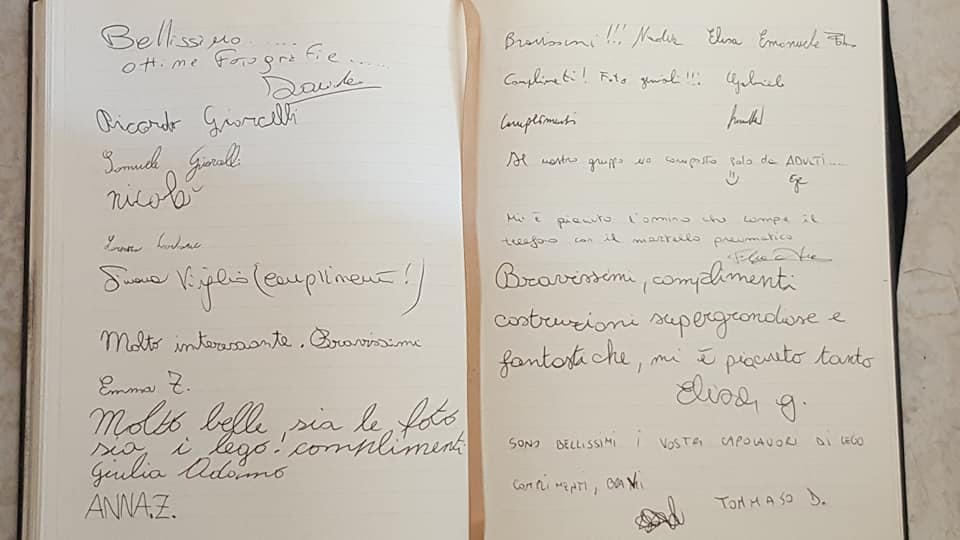 Bellissimo......
ottime Fotografie......
Davide
Riccardo Giorcelli
Samuele Giorcelli
nicolò
Viglio (complimenti!)
Molto interessante. Bravissimi
Emma Z.
Molto belle sia le foto
sia i lego! complimenti
Giulia Adorno
ANNA.Z.
Bravissimi!!! Nadia Elisa Emanuele
Complimeti! Foto geniali!!! Gabriele
Complimenti
Al nostro gruppo composto solo da ADULTI....
Mi è piaciuto l'omino che rompe il
telefono con il martello pneumatico
Bravissimi, complimenti
costruzioni supergrandiose e
fantastiche, mi è piaciuto tanto
Elisa g.
SONO BELLISSIMI I VOSTRI CAPOLAVORI DI LEGO
COMPLIMENTI, BRAVI
TOMMASO D.